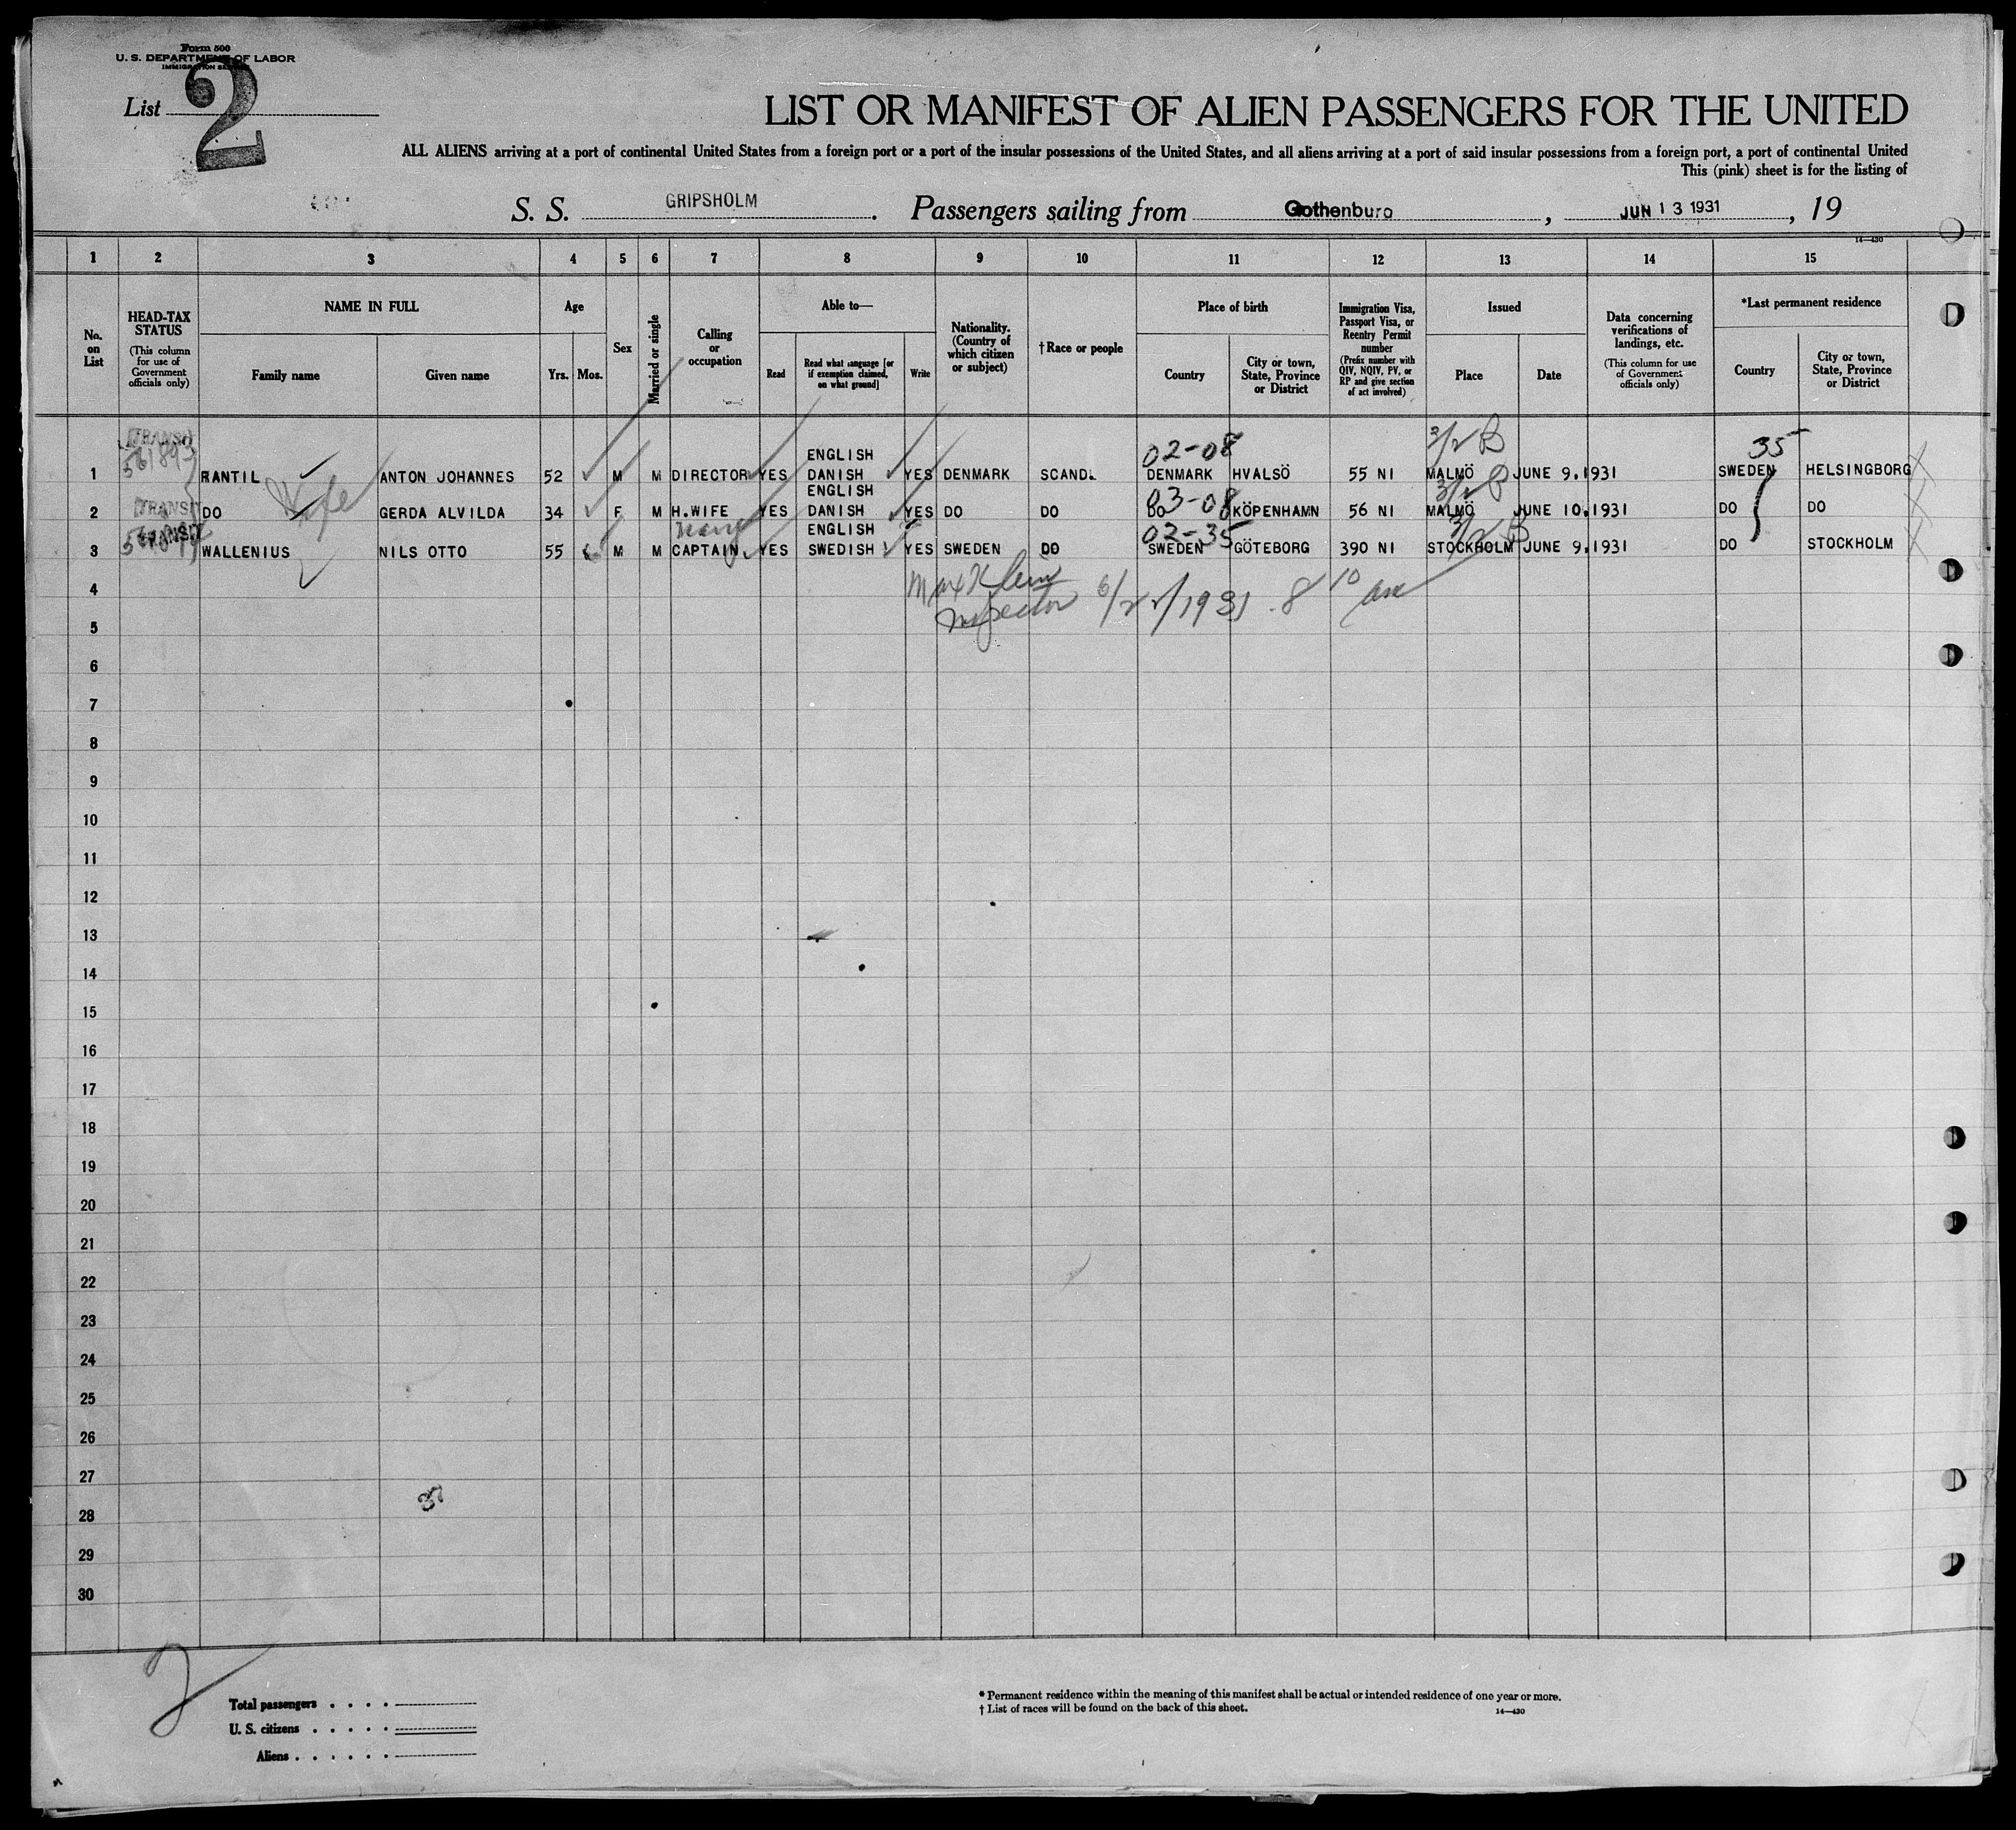 Form 500
U. S. DEPARTMENT OF LABOR
IMMIGRATION SERVICE
List 2
LIST OR MANIFEST OF ALIEN PASSENGERS FOR THE UNITED
ALL ALIENS arriving at a port of continental United States from a foreign port or a port of the insular possessions of the United States, and all aliens arriving at a port of said insular possessions from a foreign port, a port of continental United
This (pink) sheet is for the listing of
S. S. GRIPSHOLM. Passengers sailing from Gothenburg, JUN 13 1931, 19
14—430
1 2 3 4 5 6 7 8 9 10 11 12 13 14 15
No. on List
HEAD-TAX STATUS
(This column for use of Government officials only)
NAME IN FULL
Family name
Given name
Age
Yrs. Mos.
Sex
Married or single
Calling or occupation
Able to—
Read
Read what language [or if exemption claimed, on what ground]
Write
Nationality. (Country of which citizen or subject)
†Race or people
Place of birth
Country
City or town, State, Province or District
Immigration Visa, Passport Visa, or Reentry Permit number
(Prefix number with QIV, NQIV, PV, or RP and give section of act involved)
Issued
Place
Date
Data concerning verifications of landings, etc.
(This column for use of Government officials only)
*Last permanent residence
Country
City or town, State, Province or District
TRANSIT ENGLISH 02-08 3/2 B 35
1 RANTIL ANTON JOHANNES 52 M M DIRECTOR YES DANISH YES DENMARK SCAND. DENMARK HVALSÖ 55 NI MALMÖ JUNE 9.1931 SWEDEN HELSINGBORG
Wife
TRANSIT ENGLISH 03-08
2 DO GERDA ALVILDA 34 F M H.WIFE YES DANISH YES DO DO DO KÖPENHAMN 56 NI MALMÖ JUNE 10.1931 DO DO
TRANSIT ENGLISH 02-35
3 WALLENIUS NILS OTTO 55 M M CAPTAIN YES SWEDISH YES SWEDEN DO SWEDEN GÖTEBORG 390 NI STOCKHOLM JUNE 9.1931 DO STOCKHOLM
4
Max Klein
Inspector 6/22/1931 8 10 am
5
6
7
8
9
10
11
12
13
14
15
16
17
18
19
20
21
22
23
24
25
26
27
37
28
29
30
2
Total passengers
U. S. citizens
Aliens
* Permanent residence within the meaning of this manifest shall be actual or intended residence of one year or more.
† List of races will be found on the back of this sheet.
14—430